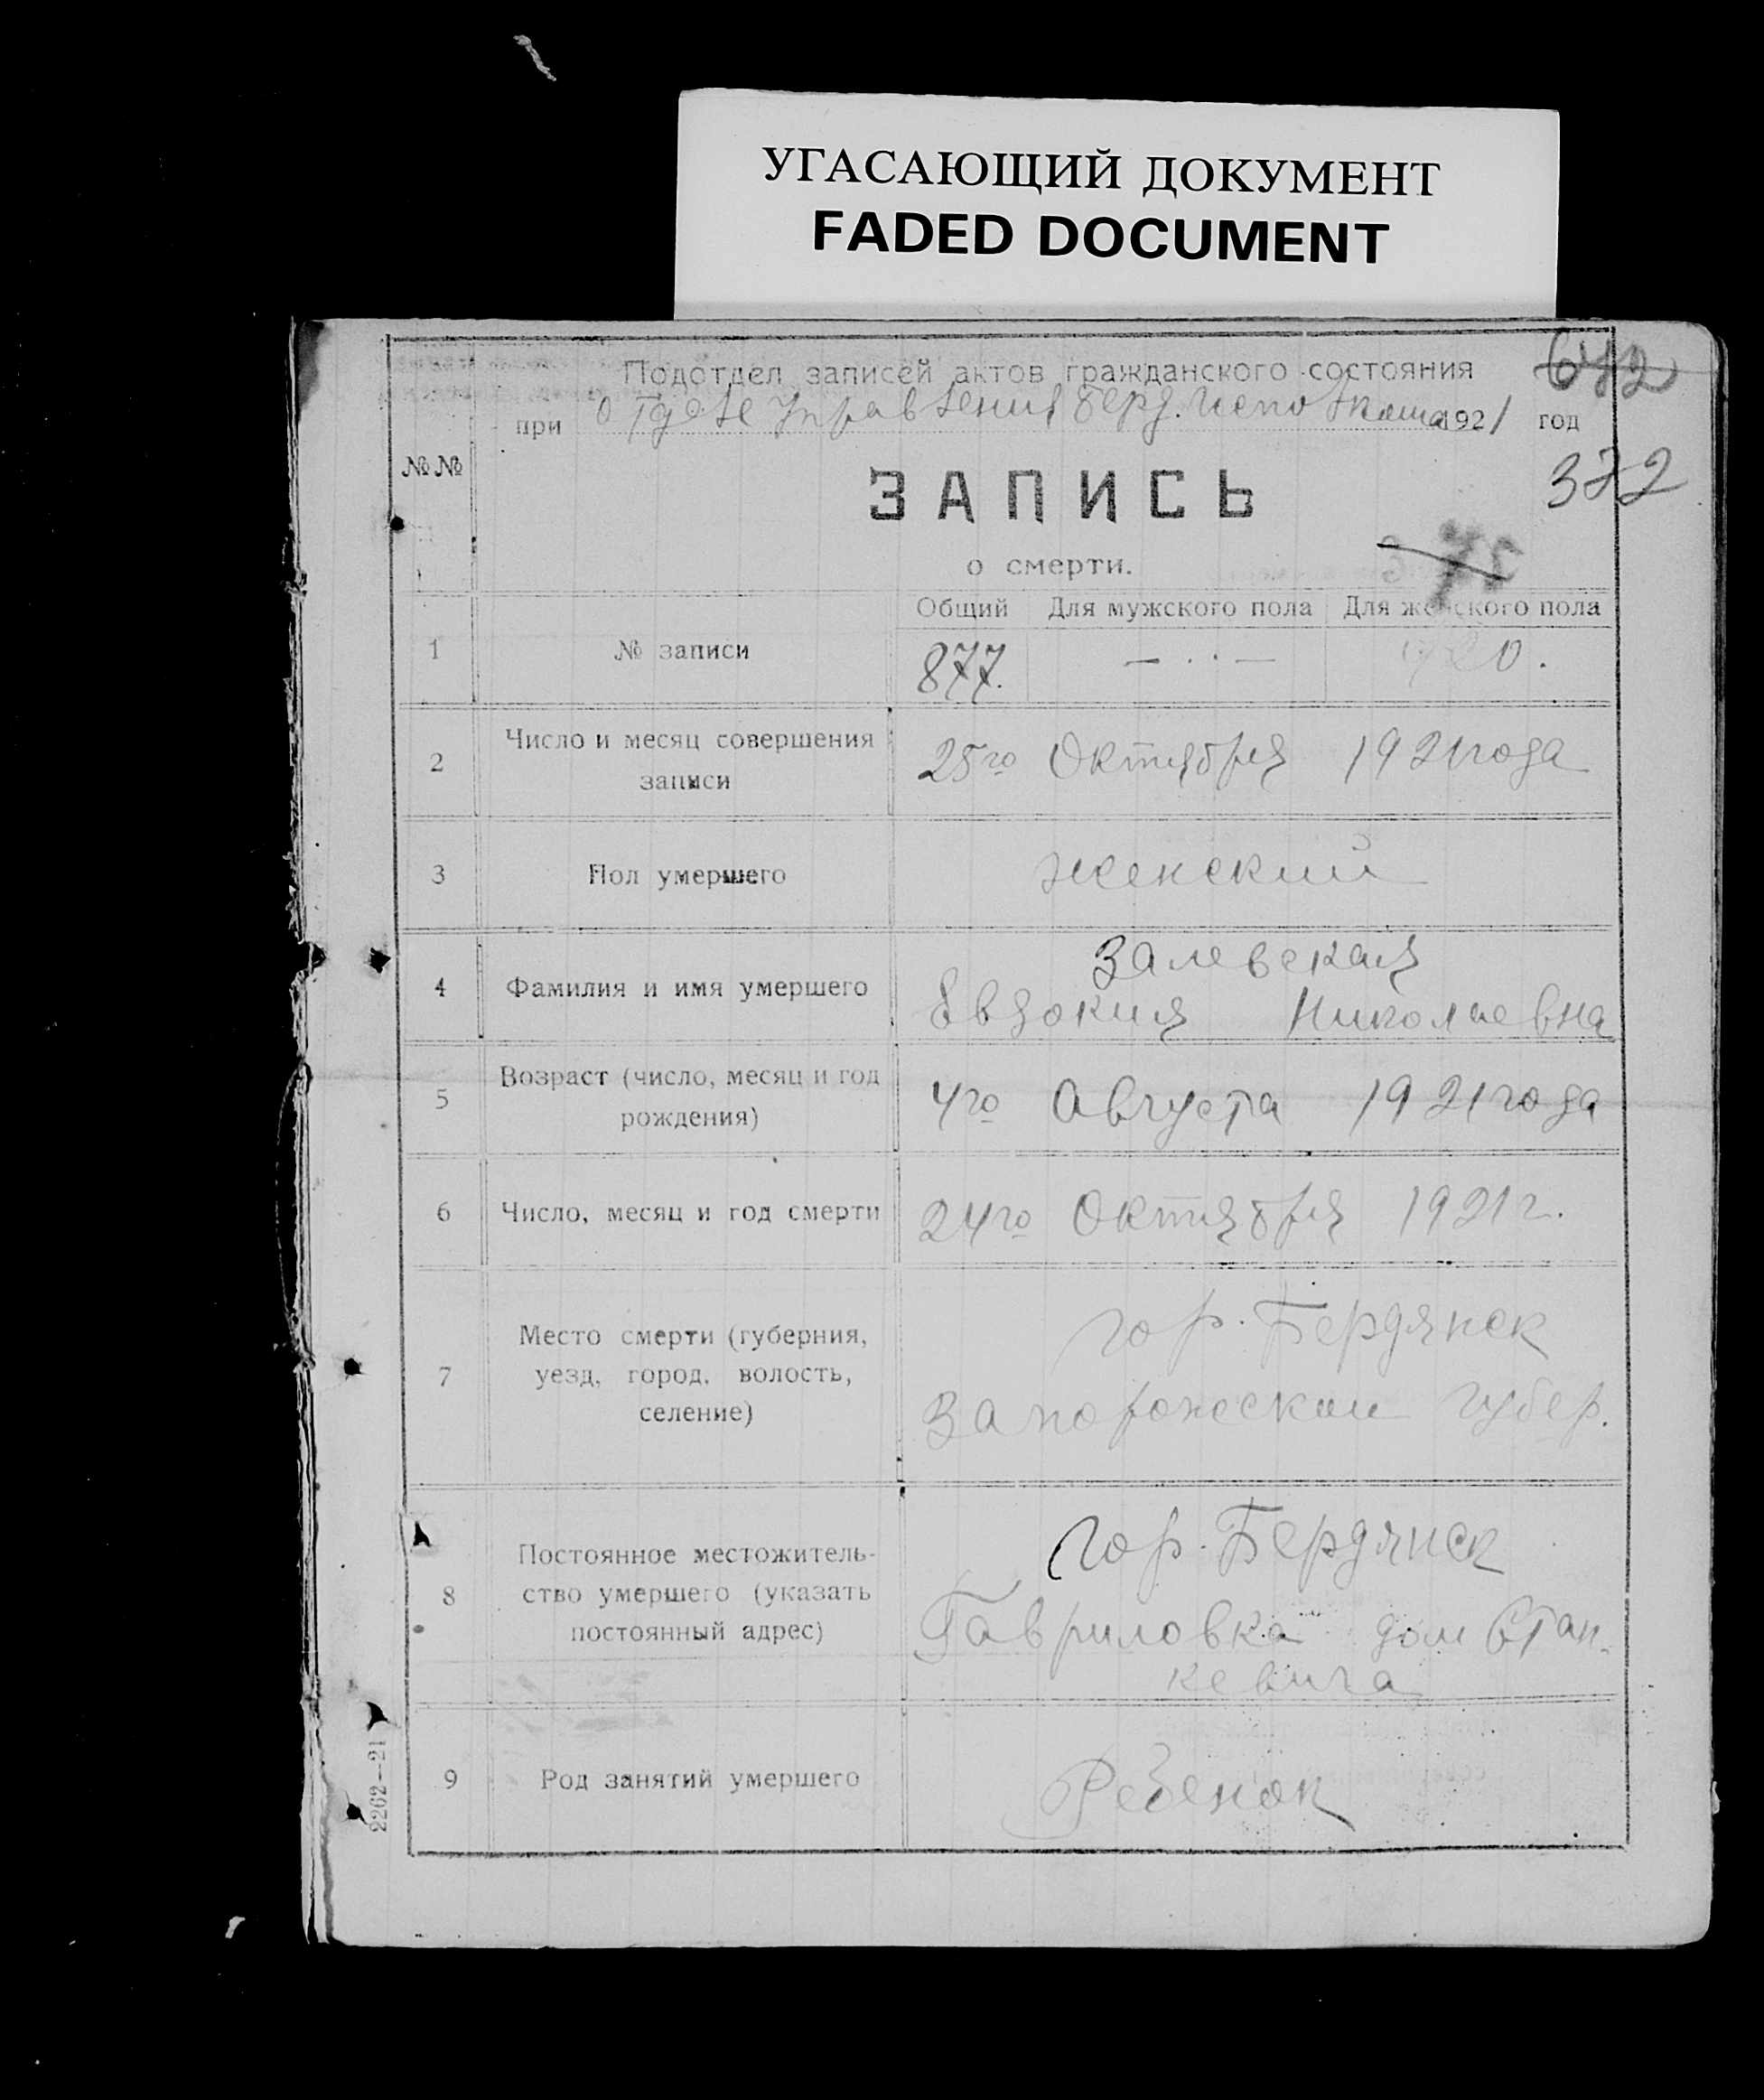 УГАСАЮЩИЙ ДОКУМЕНТ
FADED DOCUMENT
Подотдел записей актов гражданского состояния
642
при отделе Управления Берд. Исполкома 1921 год
№№
372
ЗАПИСЬ
о смерти.
Общий Для мужского пола Для женского пола
1 № записи 877. — · · — 420.
2 Число и месяц совершения
записи
25го Октября 1921 года
3 Пол умершего женский
4 Фамилия и имя умершего
Залевская
Евдокия Николаевна
5 Возраст (число, месяц и год
рождения)
4го Августа 1921 года
6 Число, месяц и год смерти 24го Октября 1921 г.
7 Место смерти (губерния,
уезд, город, волость,
селение)
гор. Бердянск
Запорожской губер.
8 Постоянное местожитель-
ство умершего (указать
постоянный адрес)
Гор. Бердянск
Гавриловка дом Стан-
кевича
9 Род занятий умершего Ребенок
2262—21